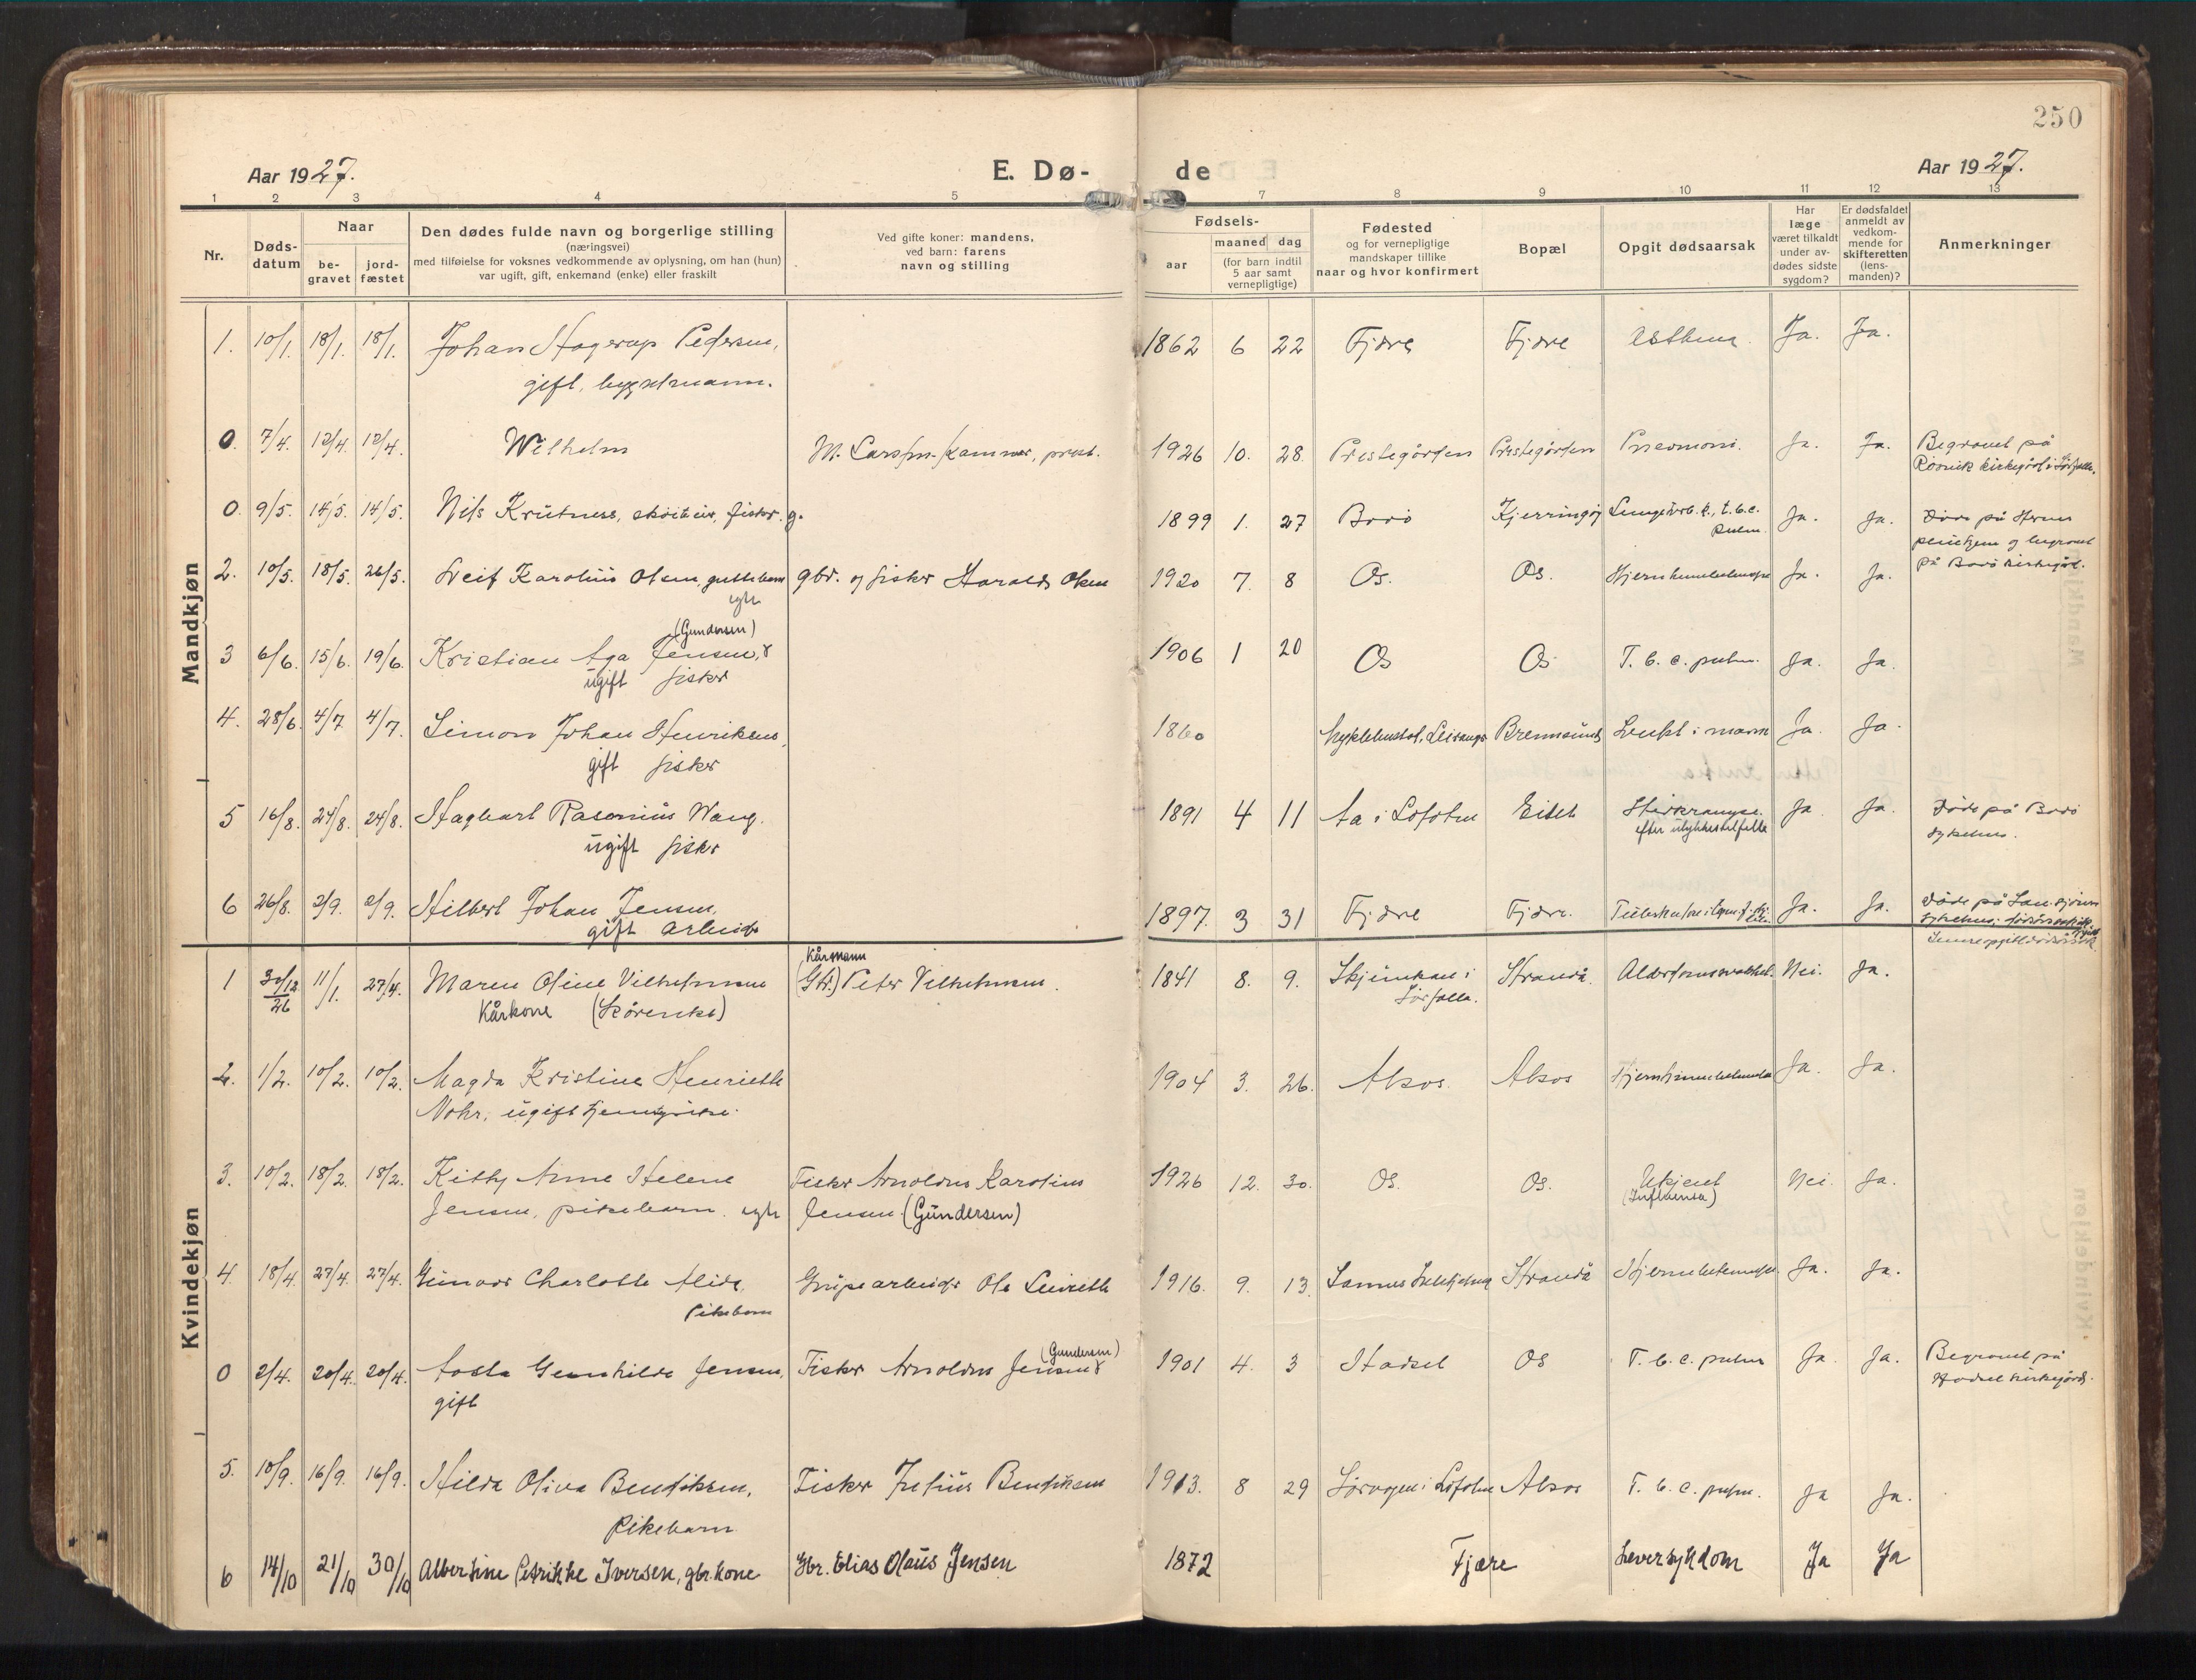 250
Aar 1927. E. Dø- de Aar 1927.
1 2 3 4 5 7 8 9 10 11 12 13
Nr. Døds-datum Naar be-gravet jord-fæstet Den dødes fulde navn og borgerlige stilling (næringsvei) med tilføielse for voksnes vedkommende av oplysning, om han (hun) var ugift, gift, enkemand (enke) eller fraskilt Ved gifte koner: mandens, ved barn: farens navn og stilling Fødsels- aar maaned dag (for barn indtil 5 aar samt vernepligtige) Fødested og for vernepligtige mandskaper tillike naar og hvor konfirmert Bopæl Opgit dødsaarsak Har læge været tilkaldt under av-dødes sidste sygdom? Er dødsfaldet anmeldt av vedkom-mende for skifteretten (lens-manden)? Anmerkninger
Mandkjøn
1. 10/1. 18/1. 18/1. Johan Hagerup Pedersen, 1862 6 22 Fjære Fjære Asthma. Ja. Ja.
gift,
0. 7/4. 12/4. 12/4. Wilhelm M. prest. 1926 10. 28. Prestegården Prestegården Pneomoni. Ja. Ja. Begravet på
Røsvik kirkegård i
0. 9/5. 14/5. 14/5. Nils fisker. g. 1899 1. 27 Bodø Kjerringøy t.b.c. Ja. Ja. Døde på
pulm. pleiehjem og begravet
2. 10/5. 18/5. 26/5. Leif Karolius Olsen, guttebarn gbr. og fisker Harald Olsen 1920 7. 8 Os. Os. Ja. Ja. på Bodø kirkegård.
egte
(Gundersen)
3 6/6. 15/6. 19/6. Kristian Aga Jensen, 1906 1 20 Os Os T.b.c. pulm. Ja. Ja.
ugift fisker
4. 28/6. 4/7 4/7. Simon Johan Henriksen, 1860 Brennsund Ja. Ja.
gift fisker
5 16/8. 24/8. 24/8. Hagbart Wang. 1891 4 11 Aa i Lofoten Ja Ja. Døde på Bodø
ugift fisker efter ulykkestilfelle sykehus.
6 26/8. 2/9. 2/9. Hilbert Johan Jensen, 1897. 3 31 Fjære Fjære. Ja. Ja. Døde på
gift arbeider
Kvindekjøn
Kårmann
1 30/12 26 11/1. 27/4. Maren Oline Vilhelmsen (Gbr.) Peter Vilhelmsen. 1841 8. 9. i Strandå. Nei. Ja.
Kårkone Sørfolla.
2. 1/2. 10/2. 10/2. Magda Kristine Henriette 1904 3. 26. Alsos. Alsos Ja. Ja.
Nohr, ugift
3. 10/2. 18/2. 18/2. Kitty Anne Helene Fisker Arnoldus Karolius 1926 12. 30. Os. Os. Ukjent Nei. Ja.
Jensen, pikebarn. egte Jensen (Gundersen) (Influensa)
4. 18/4. 27/4. 27/4. Gunvor Charlotte Alida, Grubearbeider Ole 1916. 9. 13. Strandå Ja. Ja.
Pikebarn
(Gundersen)
0 2/4. 20/4. 20/4. Aasta Gunhilda Jensen, Fisker Arnoldus Jensen 1901 4. 3 Hadsel Os T.b.c. pulm Ja. Ja. Begravet på
gift Hadsel kirkegård.
5. 10/9. 16/9. 16/9. Hilda Oliva Bendiksen, Fisker Julius Bendiksen 1913. 8 29 Sørvågen i Lofoten Alsos T.b.c. pulm. Ja Ja.
Pikebarn
6 14/10 21/10 30/10 Albertine Petrikke Iversen, gbr.kone Gbr. Elias Olaüs Jensen 1872 Fjære Leversykdom Ja Ja